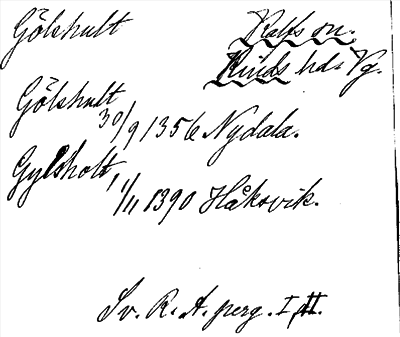 Gölshult Kalfs sn.
Kinds hd. Vg.
Gölshult
30/9 1356 Nydala.
Gylsholt, 11/11 1390 Håksvik.
Sv. R. A. perg. I, II.